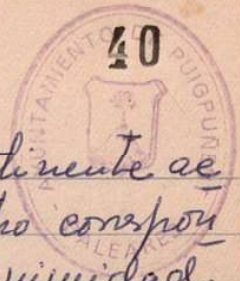 40
AYUNTAMIENTO DE PUIGPUÑ
BALEARES
tinente ac
ho correspon
nimidad.